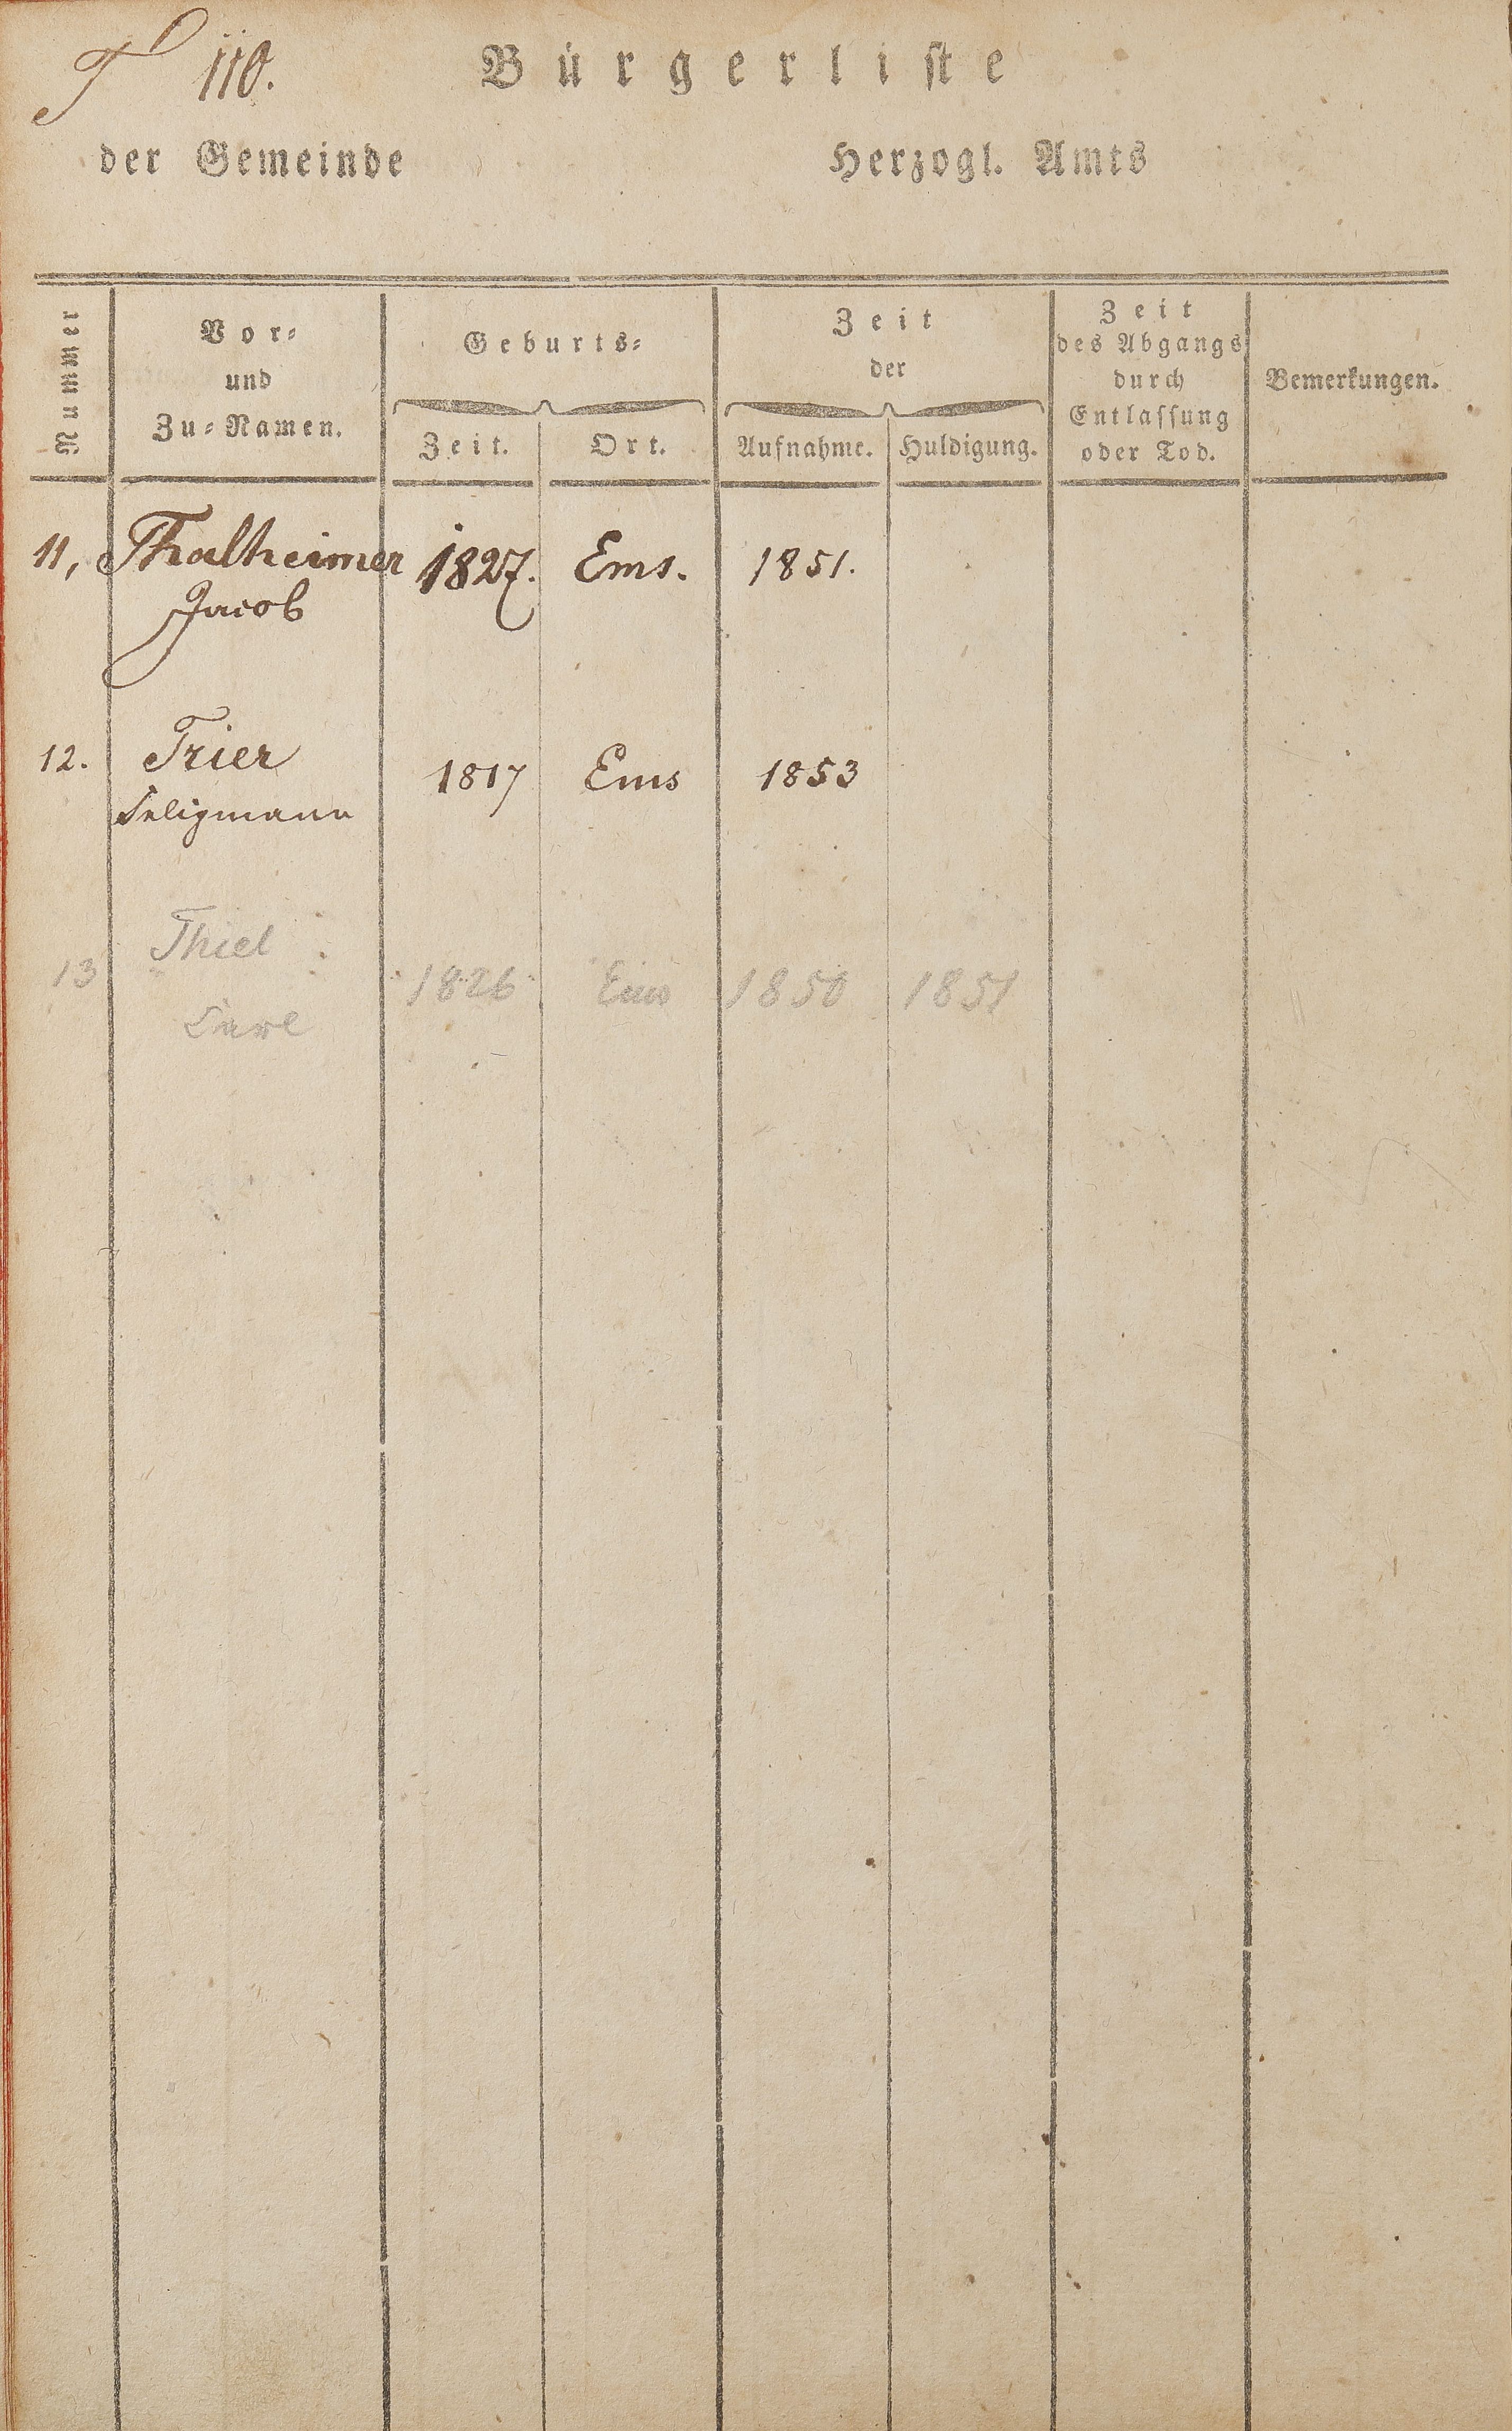 T 110. Bürgerliste
der Gemeinde Herzogl. Amts
Nummer
Vor-
und
Zu-Namen.
Geburts-
Zeit. Ort.
Zeit
der
Aufnahme. Huldigung.
Zeit
des Abgangs
durch
Entlassung
oder Tod.
Bemerkungen.
11, Thalheimer 1827. Ems. 1851.
Jacob
12. Trier 1817 Ems 1853
Seligmann
13 Thiel 1826 Ems 1850 1851
Carl